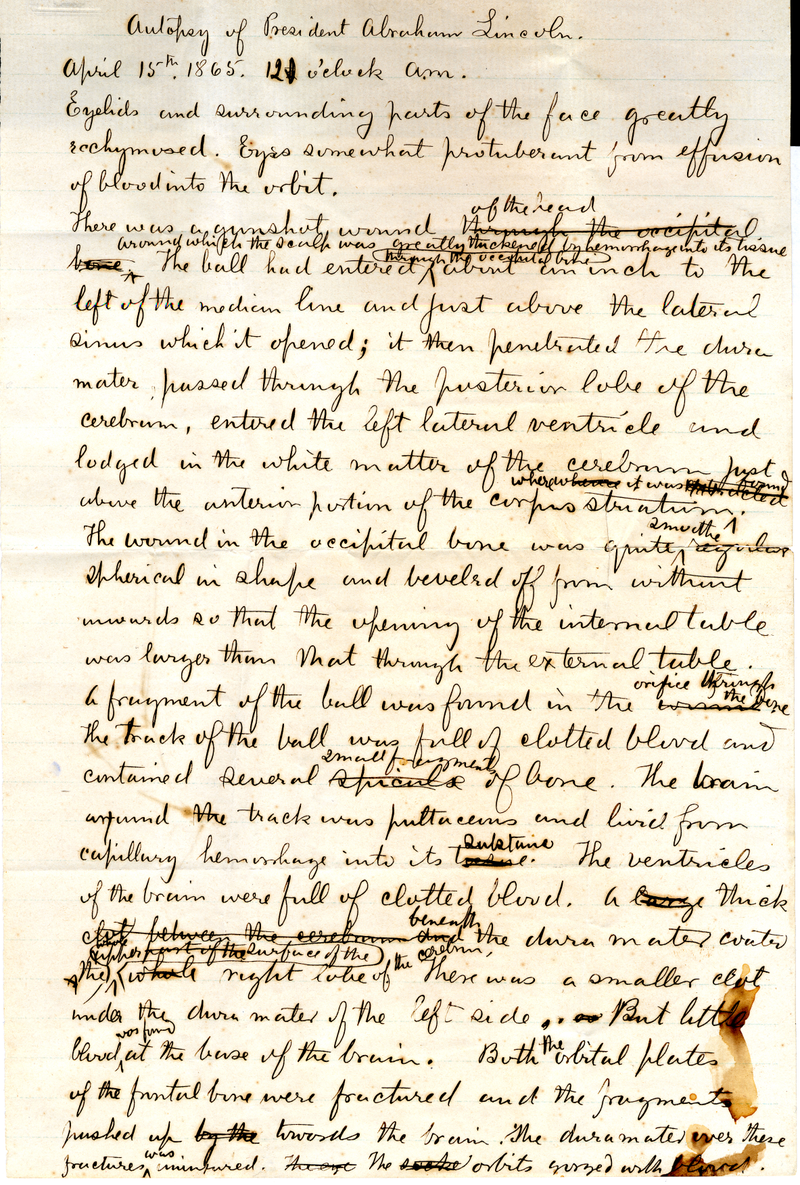 Autopsy of President Abraham Lincoln.
April 15th. 1865. 12 o'clock am.
Eyelids and surrounding parts of the face greatly
ecchymosed. Eyes somewhat protuberant from effusion
of blood into the orbit.
of the head
There was a gunshot wound through the occipital
around which the scalp was greatly thickened by hemorrhage into its tissue
through the occipital bone
bone. The ball had entered about an inch to the
left of the median line and just above the lateral
sinus which it opened; it then penetrated the dura
mater, passed through the posterior lobe of the
cerebrum, entered the left lateral ventricle and
lodged in the white matter of the cerebrum just
where it was found
above the anterior portion of the corpus striatum.
smooth
The wound in the occipital bone was quite regular
spherical in shape and beveled off from without
inwards so that the opening of the internal table
was larger than that through the external table.
orifice through
the bone
A fragment of the ball was found in the wound
the track of the ball was full of clotted blood and
small fragments
contained several spicula of bone. The brain
around the track was pultaceous and livid from
substance
capillary hemorrhage into its tissue. The ventricles
of the brain were full of clotted blood. A large thick
beneath
clot between the cerebrum and the dura mater coated
upper part of the surface of the
of the cerebrum,
the whole right lobe There was a smaller clot
under the dura mater of the left side. But little
was found
blood at the base of the brain. Both the orbital plates
of the frontal bone were fractured and the fragments
pushed up by the towards the brain. The dura mater over these
was
fractures uninjured. The orbits gorged with blood.